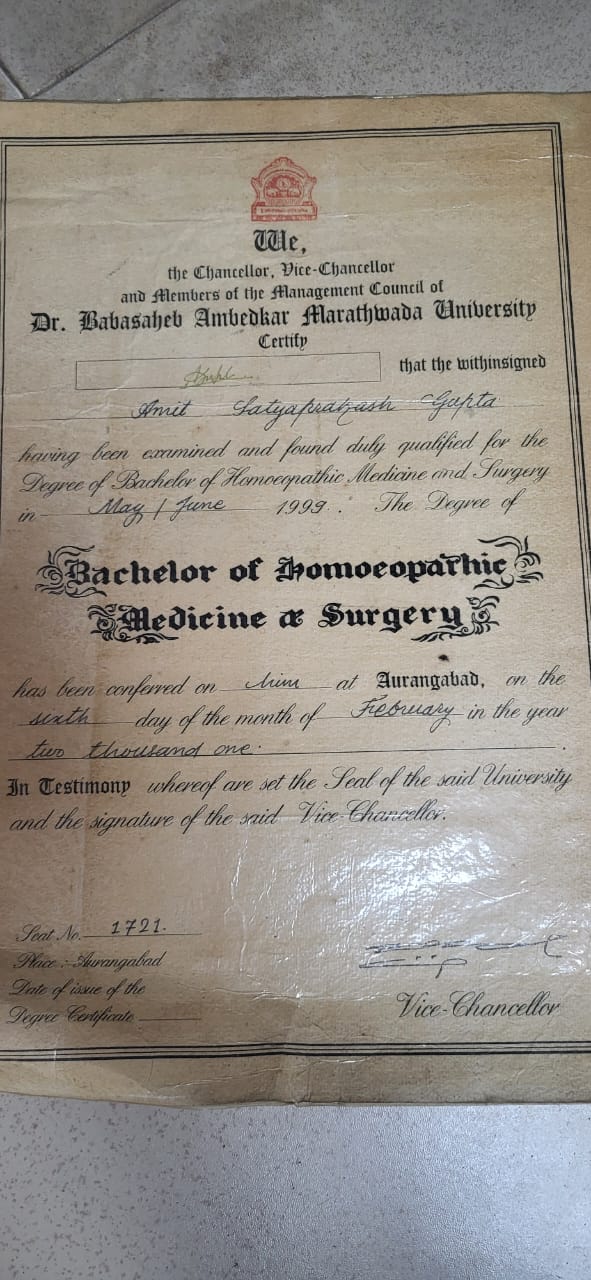 We,
the Chancellor, Vice-Chancellor
and Members of the Management Council of
Dr. Babasaheb Ambedkar Marathwada University
Certify
that the withinsigned
Amit Satyaprakash Gupta
having been examined and found duly qualified for the
Degree of Bachelor of Homoeopathic Medicine and Surgery
in May / June 1999. The Degree of
Bachelor of Homoeopathic
Medicine & Surgery
has been conferred on him at Aurangabad, on the
sixth day of the month of February in the year
two thousand one.
In Testimony whereof are set the Seal of the said University
and the signature of the said Vice-Chancellor.
Seat No. 1721.
Place : Aurangabad
Date of issue of the
Degree Certificate
Vice-Chancellor